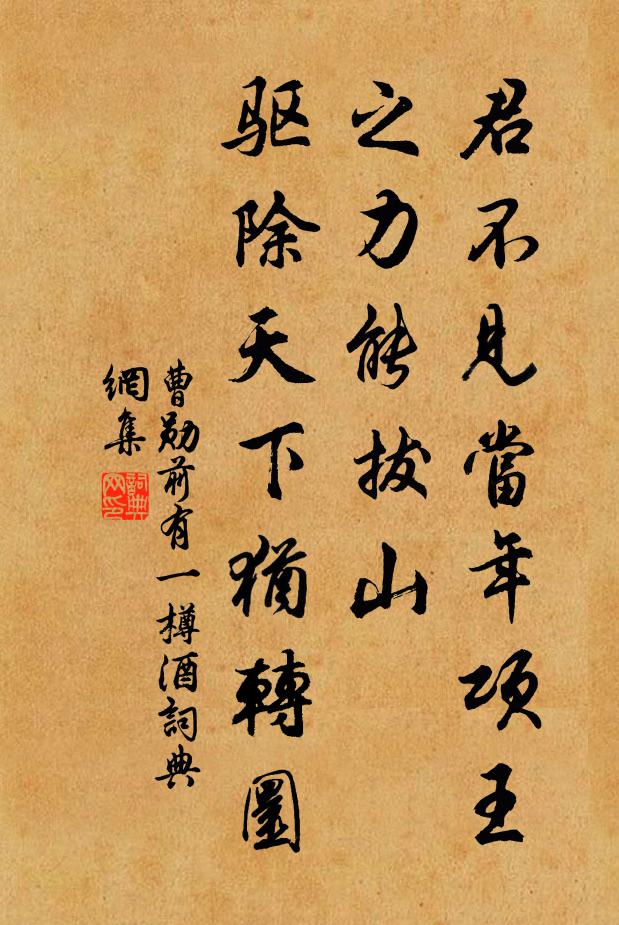 君不見當年项王
之力能拔山
驱除天下猶轉圜
曹勛前有一樽酒詞典
網集
詞典
网印